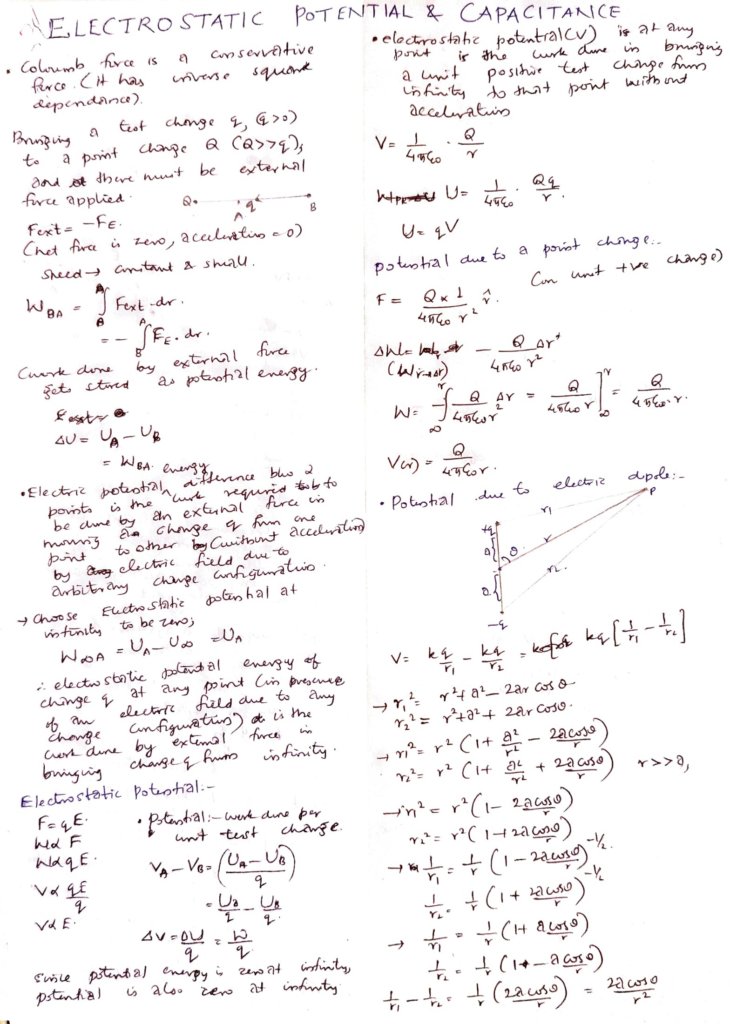 ELECTROSTATIC POTENTIAL & CAPACITANCE
• Coloumb force is a conservative
force. (it has inverse square
dependance).
Bringing a test charge q, (q>0)
to a point charge Q (Q>>q),
and there must be external
force applied.
Q q B
A
Fext = -FE.
(net force is zero, acceleration = 0)
Speed → constant & small.
W_BA = ∫_B^A Fext . dr.
= - ∫_B^A FE . dr.
(work done by external force
gets stored as potential energy.
ΔU = UA - UB
= WBA.
• Electric potential energy difference b/w 2
points is the work required to
be done by an external force in
moving a charge q from one
point to other (without acceleration)
by electric field due to
arbitrary charge configuration.
→ choose Electrostatic potential at
infinity to be zero;
W∞A = UA - U∞ = UA
∴ electrostatic potential energy of
charge q at any point (in presence
of an electric field due to any
charge configuration) is the
work done by external force in
bringing charge q from infinity.
Electrostatic Potential:-
F = qE.
W α F
W α qE.
V α qE/q
V α E.
• Potential:- work done per
unit test charge.
VA - VB = (UA - UB / q)
= Ua/q - UB/q
ΔV = ΔU/q = W/q
Since potential energy is zero at infinity,
potential is also zero at infinity
• electrostatic potential (V) is at any
point is the work done in bringing
a unit positive test charge from
infinity to that point without
acceleration
V = 1/4πε0 . Q/r
U = 1/4πε0 . Qq/r.
U = qV
potential due to a point charge:-
(on unit +ve charge)
F = Q×1/4πε0 r² r̂.
ΔW = - Q/4πε0 r² Δr
(W r→Δr)
W = -∫_∞^r Q/4πε0 r² Δr = Q/4πε0 r ]_∞^r = Q/4πε0 . r.
V(r) = Q/4πε0 r.
• Potential due to electric dipole:-
P
+q r1
a θ r
a r2
-q
V = kq/r1 - kq/r2 = kq [1/r1 - 1/r2]
→ r1² = r² + a² - 2ar cos θ
r2² = r² + a² + 2ar cos θ.
→ r1² = r² (1 + a²/r² - 2acosθ/r)
r2² = r² (1 + a²/r² + 2acosθ/r) r>>a,
→ r1² = r² (1 - 2acosθ/r)
r2² = r² (1 + 2acosθ/r)
→ 1/r1 = 1/r (1 - 2acosθ/r)^-1/2.
1/r2 = 1/r (1 + 2acosθ/r)^-1/2
→ 1/r1 = 1/r (1 + acosθ/r)
1/r2 = 1/r (1 - acosθ/r)
1/r1 - 1/r2 = 1/r (2acosθ/r) = 2acosθ/r²